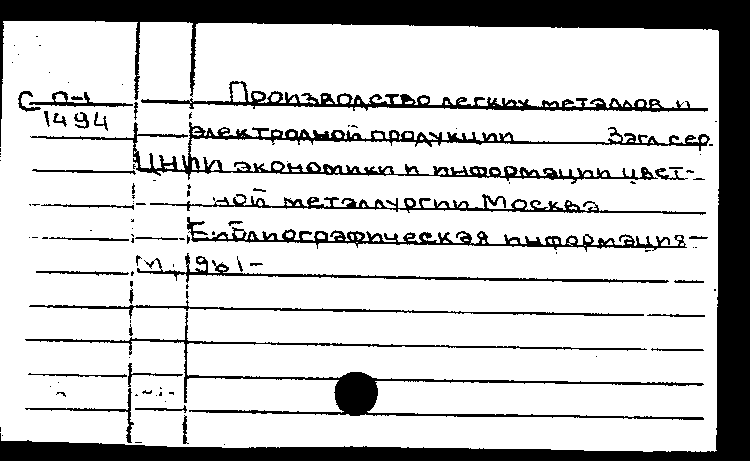 С П-1
1494
Производство легких металлов и
электродной продукции Загл.сер.
ЦНИИ экономики и информации цвет-
ной металлургии Москва.
Библиографическая информация-
М., 1961-